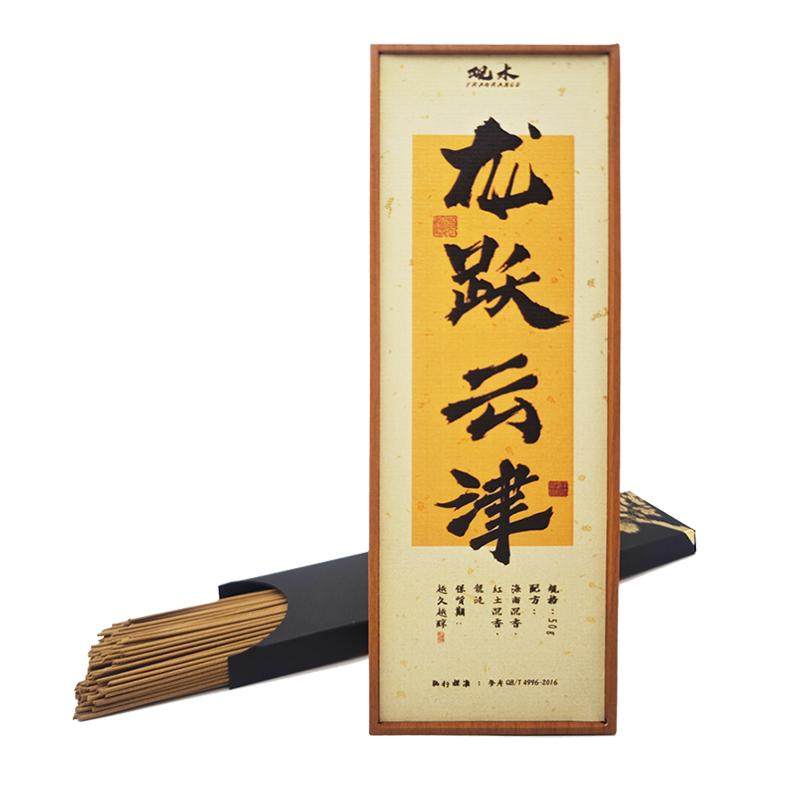 观木
FRAGRANCE
龙跃云津
规格:50g
配方:
海南沉香·
红土沉香·
龍涎
保質期:
越久越醇
执行标准:参考QB/T 4996-2016